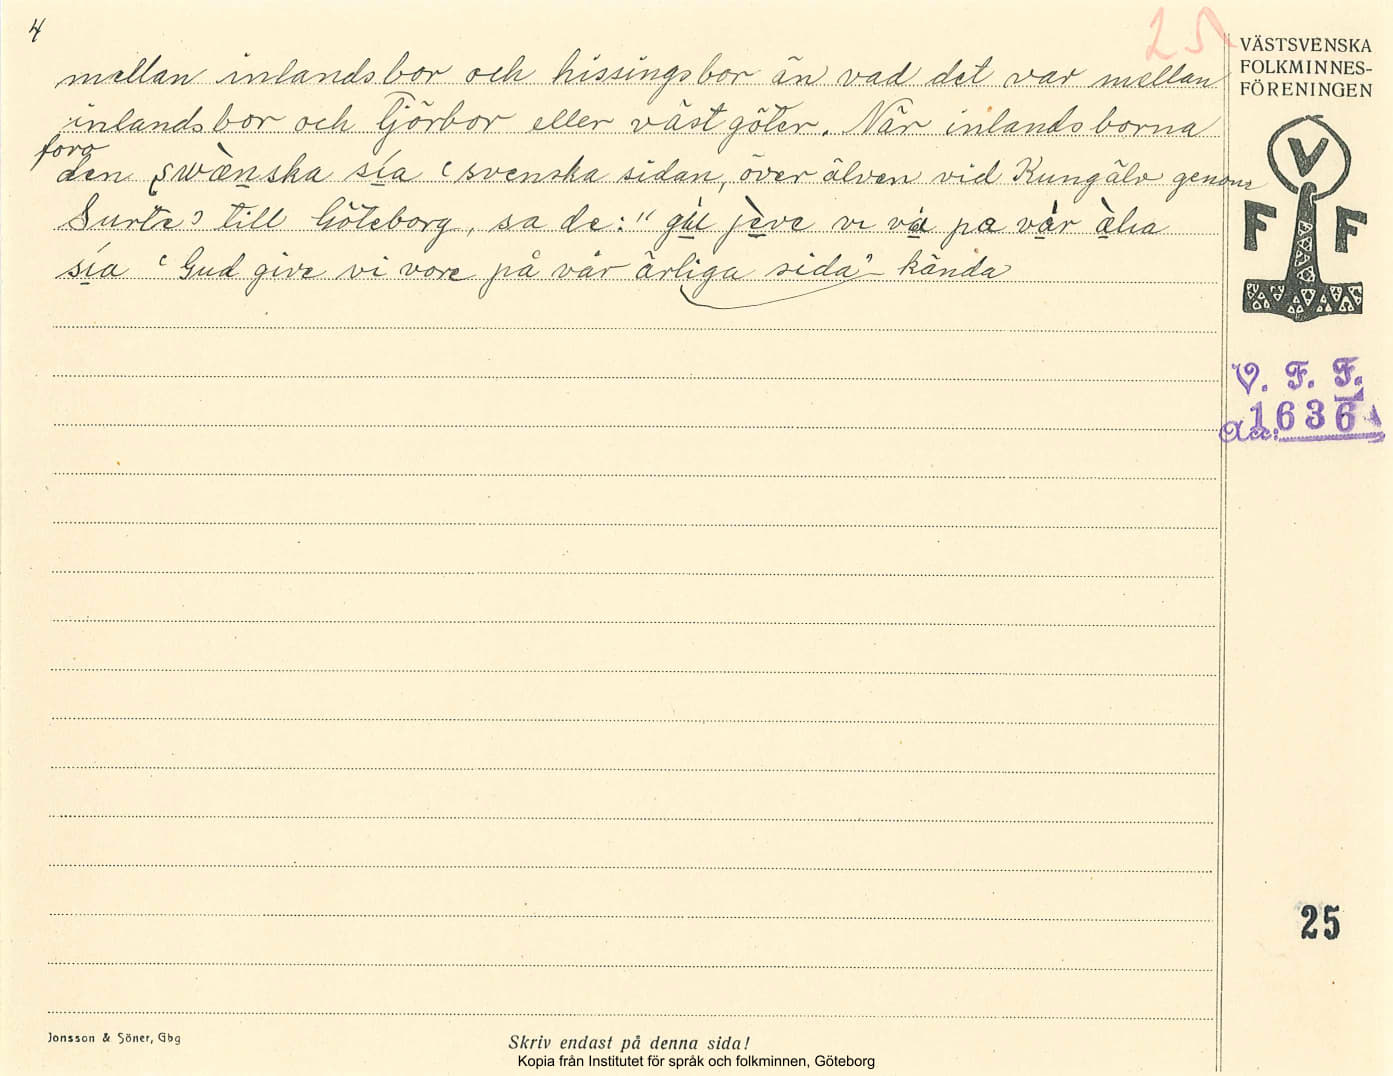 4
25
mellan inlandsbor och hissingsbor än vad det var mellan
inlandsbor och Tjörbor eller västgöter. När inlandsborna
foro
den swènska sía (svenska sidan, över älven vid Kungälv genom
Surte) till Göteborg, sa de: " jève vi på vår
sía (Gud give vi vore på vår ärliga sida" - kända
VÄSTSVENSKA
FOLKMINNES-
FÖRENINGEN
V
F F
V. F. F.
Acc: 1636
25
Jonsson & Söner, Gbg
Skriv endast på denna sida!
Kopia från Institutet för språk och folkminnen, Göteborg